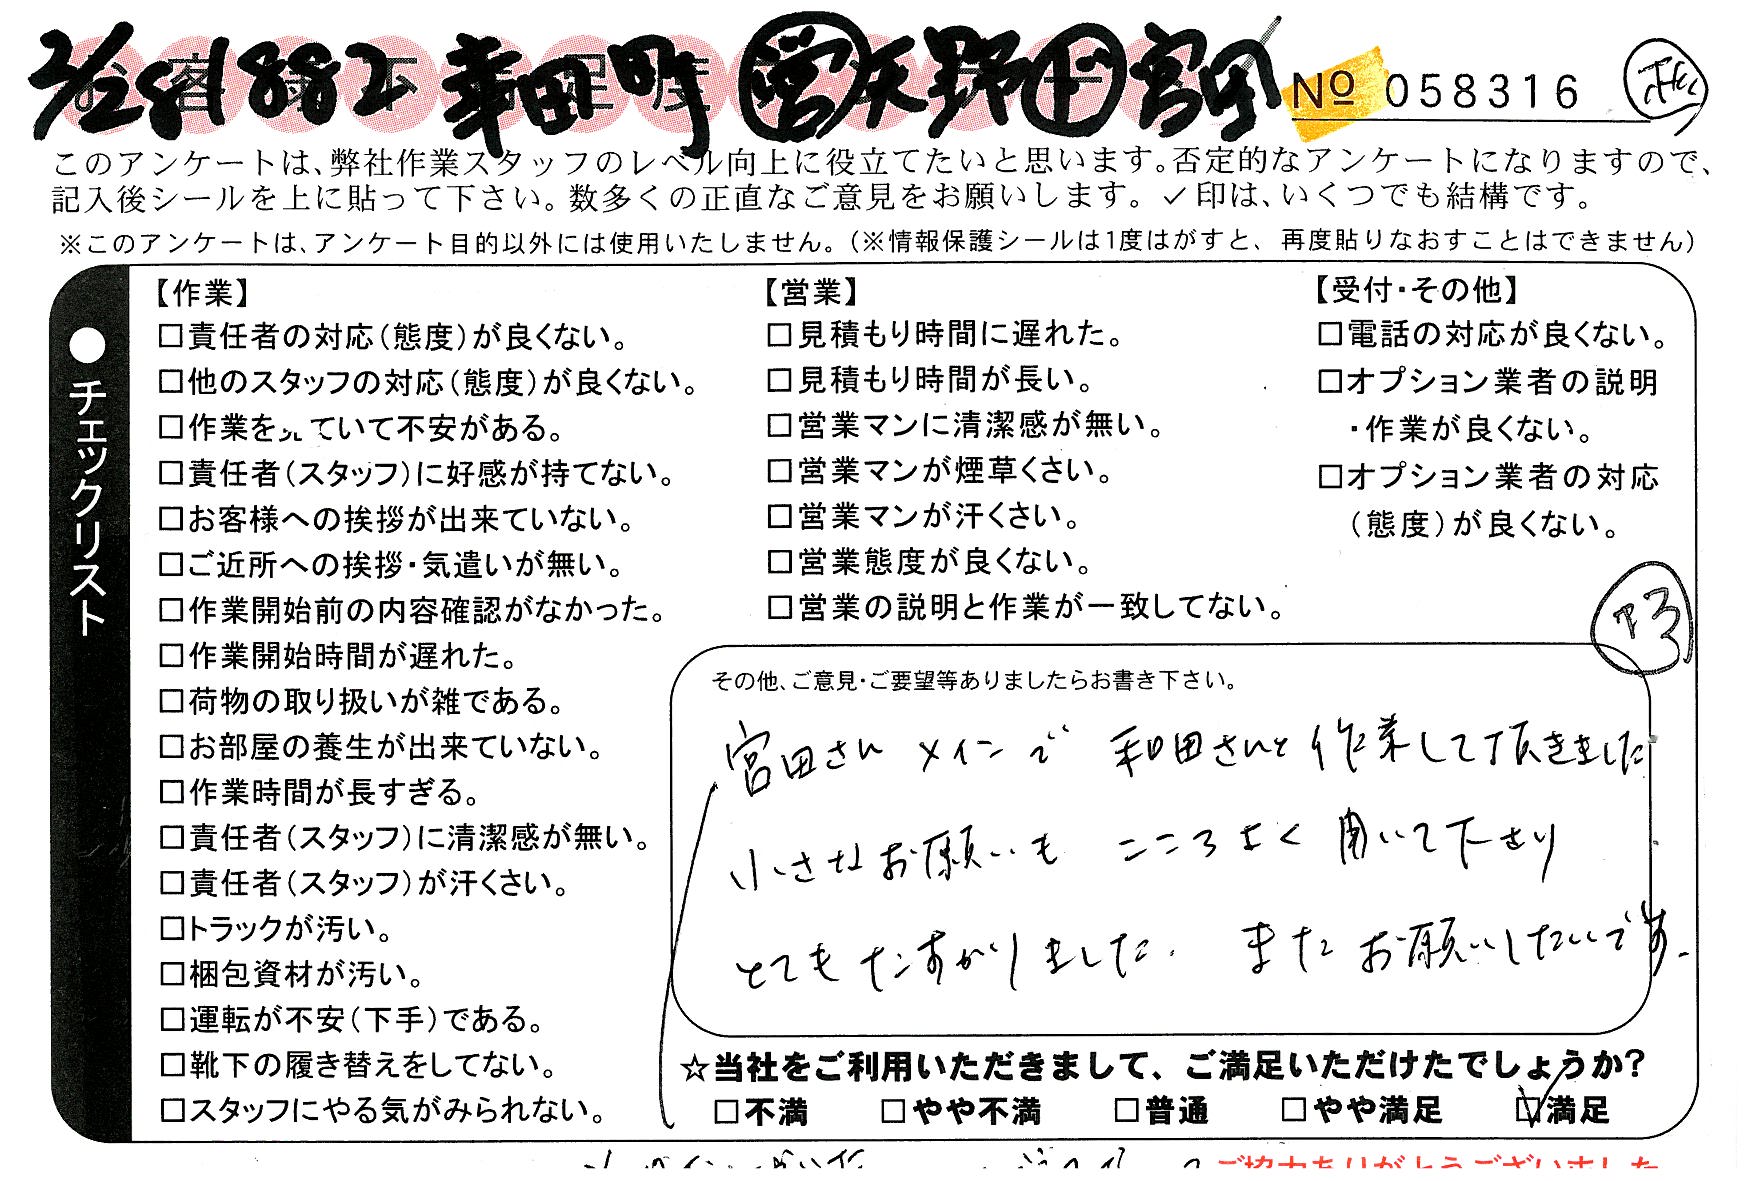 2/28 1882 幸田町 営 矢野 宮田
No 058316
このアンケートは、弊社作業スタッフのレベル向上に役立てたいと思います。否定的なアンケートになりますので、
記入後シールを上に貼って下さい。数多くの正直なご意見をお願いします。✓印は、いくつでも結構です。
※このアンケートは、アンケート目的以外には使用いたしません。(※情報保護シールは1度はがすと、再度貼りなおすことはできません)
●チェックリスト
【作業】
□責任者の対応(態度)が良くない。
□他のスタッフの対応(態度)が良くない。
□作業を見ていて不安がある。
□責任者(スタッフ)に好感が持てない。
□お客様への挨拶が出来ていない。
□ご近所への挨拶・気遣いが無い。
□作業開始前の内容確認がなかった。
□作業開始時間が遅れた。
□荷物の取り扱いが雑である。
□お部屋の養生が出来ていない。
□作業時間が長すぎる。
□責任者(スタッフ)に清潔感が無い。
□責任者(スタッフ)が汗くさい。
□トラックが汚い。
□梱包資材が汚い。
□運転が不安(下手)である。
□靴下の履き替えをしてない。
□スタッフにやる気がみられない。
【営業】
□見積もり時間に遅れた。
□見積もり時間が長い。
□営業マンに清潔感が無い。
□営業マンが煙草くさい。
□営業マンが汗くさい。
□営業態度が良くない。
□営業の説明と作業が一致してない。
【受付・その他】
□電話の対応が良くない。
□オプション業者の説明
・作業が良くない。
□オプション業者の対応
(態度)が良くない。
その他、ご意見・ご要望等ありましたらお書き下さい。
宮田さん メインで 和田さんと作業して頂きました
小さなお願いも こころよく 聞いて下さり
とてもたすかりました. またお願いしたいです.
☆当社をご利用いただきまして、ご満足いただけたでしょうか?
□不満 □やや不満 □普通 □やや満足 ☑満足
ご協力ありがとうございました